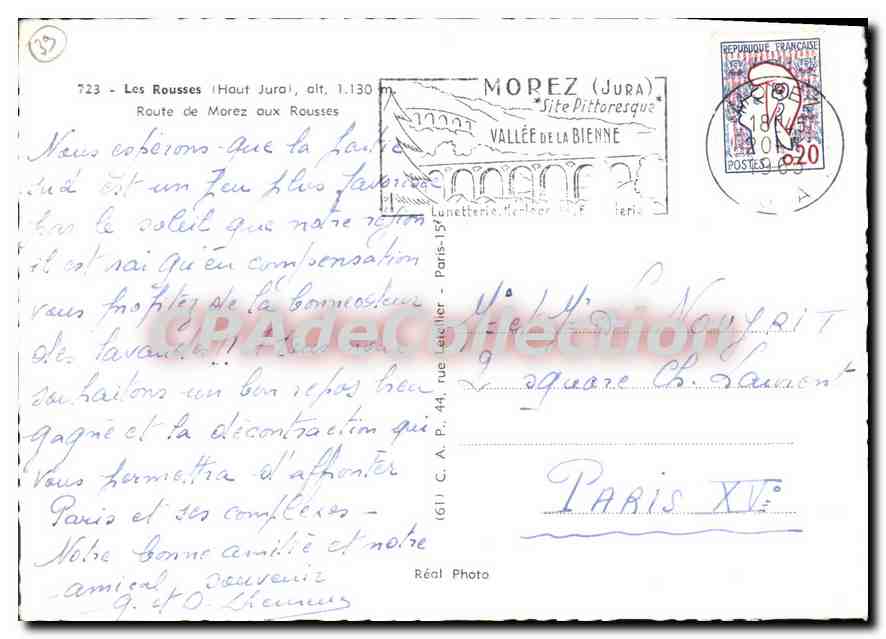 39
723 - Les Rousses (Haut Jura), alt. 1.130 m.
Route de Morez aux Rousses
MOREZ (JURA)
"Site Pittoresque"
VALLÉE DE LA BIENNE
Lunetterie
REPUBLIQUE FRANÇAISE
POSTES 0,20
18
1965
Nous espérons que la partie
sud est un peu plus favorisée
par le soleil que notre région
il est vrai qu'en compensation
vous profitez de la bonne odeur
des lavandes!!! nous vous
souhaitons un bon repos bien
gagné et la décontraction qui
vous permettra d'affronter
Paris et ses complexes -
Notre bonne amitié et notre
amical souvenir
G. et O.
(61) C. A. P., 44, rue Letellier - Paris-15e
CPAdeCollection
Mr et Me NOUYRIT
2 square Ch. Laurent
PARIS XVe
Réal Photo